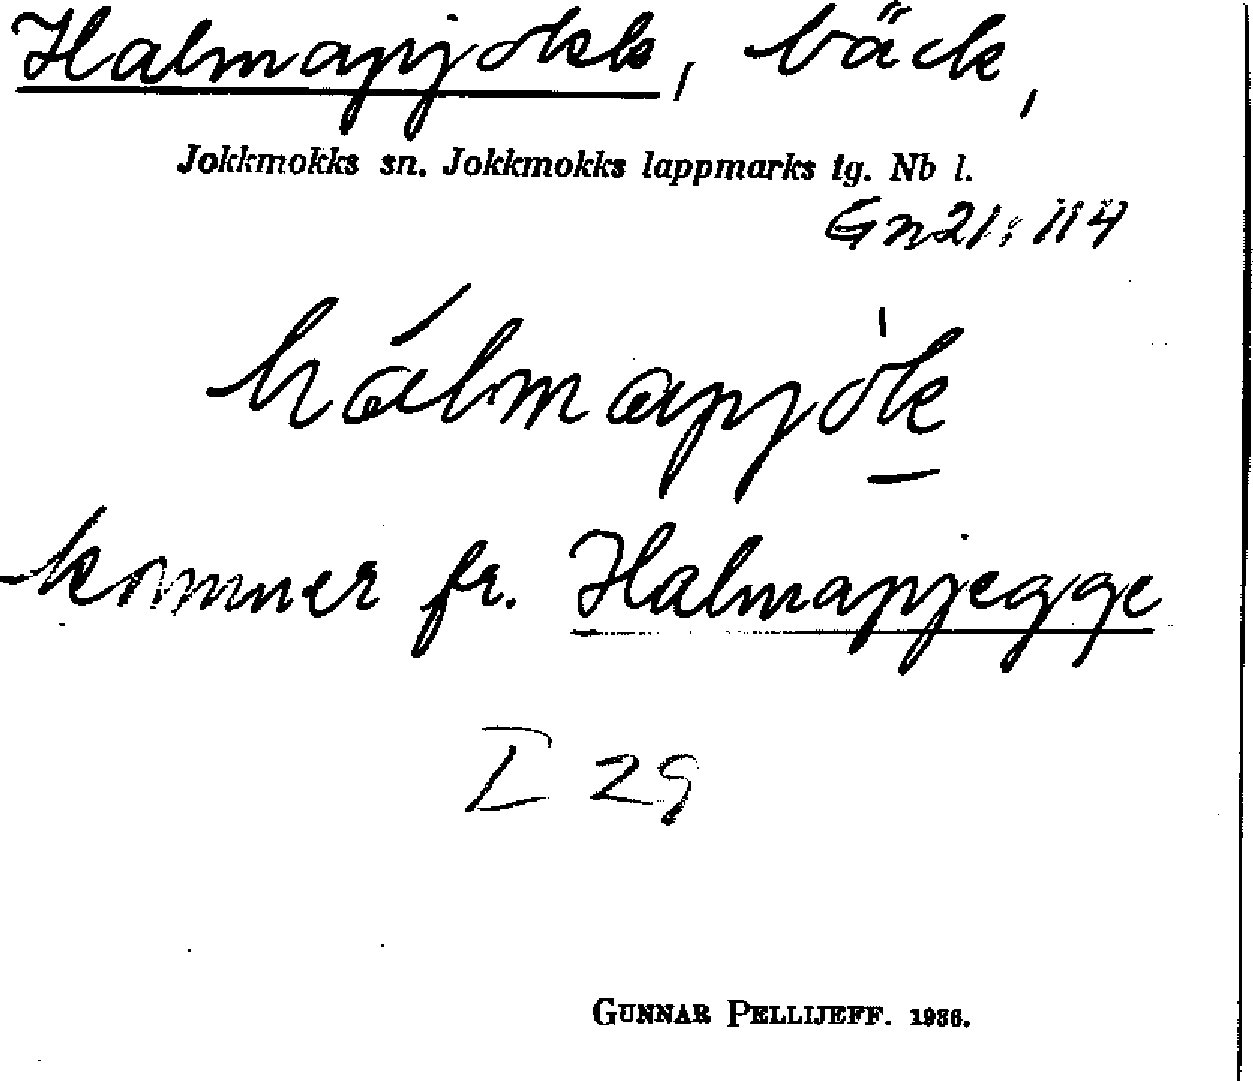 Halmapjokk, bäck,
Jokkmokks sn. Jokkmokks lappmarks tg. Nb l.
Gn 21: 114
hálmapjòk
kommer fr. Halmapjegge
I 29
GUNNAR PELLIJEFF. 1936.